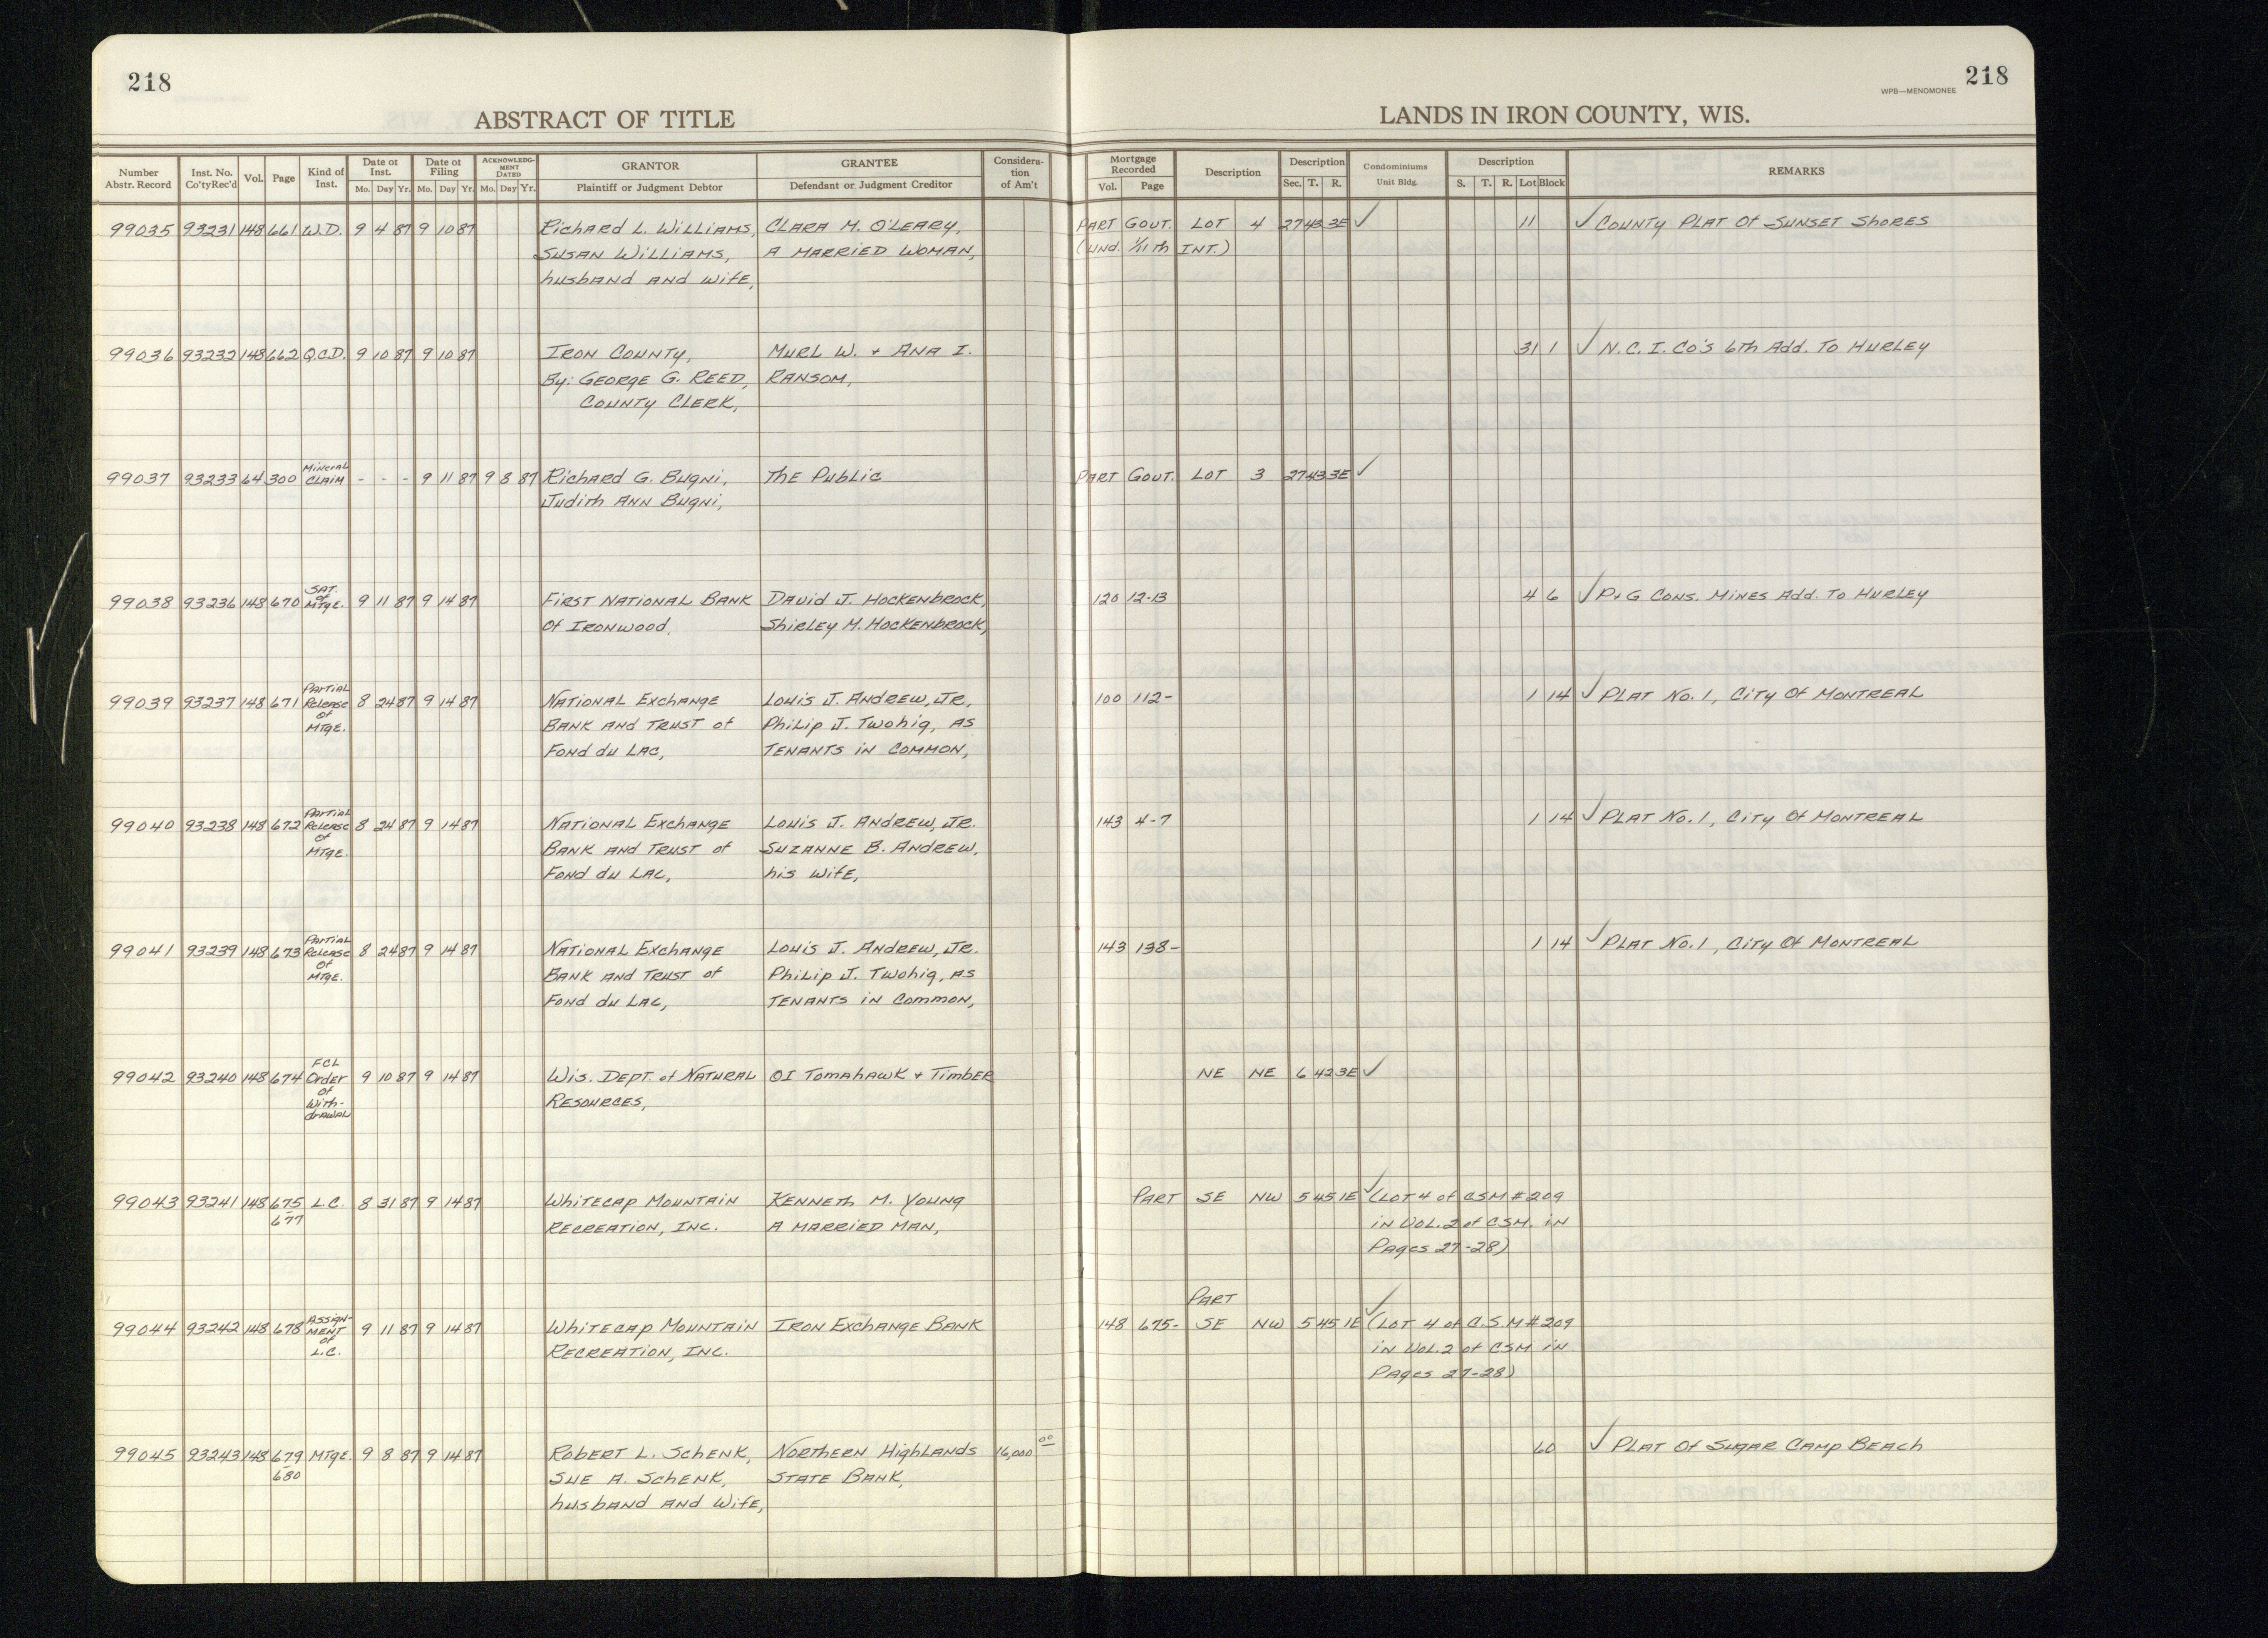 218
218
WPB—MENOMONEE
ABSTRACT OF TITLE
LANDS IN IRON COUNTY, WIS.
Number Abstr. Record | Inst. No. Co'tyRec'd | Vol. | Page | Kind of Inst. | Date of Inst. Mo. Day Yr. | Date of Filing Mo. Day Yr. | ACKNOWLEDGMENT DATED Mo. Day Yr. | GRANTOR Plaintiff or Judgment Debtor | GRANTEE Defendant or Judgment Creditor | Consideration of Am't | Mortgage Recorded Vol. Page | Description | Description Sec. T. R. | Condominiums Unit Bldg. | Description S. T. R. Lot Block | REMARKS
99035 93231 148 661 W.D. 9 4 87 9 10 87 Richard L. Williams, CLARA M. O'LEARY, PART GOUT. LOT 4 27 43 3E ✓ 11 ✓ COUNTY PLAT Of SUNSET SHORES
SUSAN WILLIAMS, A MARRIED WOMAN, (und. 1/11th INT.)
husband AND wife,
99036 93232 148 662 Q.C.D. 9 10 87 9 10 87 IRON COUNTY, MURL W. + ANA I. 31 1 ✓ N.C.I. CO'S 6th Add. To HURLEY
By: GEORGE G. REED, RANSOM,
COUNTY CLERK,
99037 93233 64 300 Mineral CLAIM - - - 9 11 87 9 8 87 Richard G. Bugni, The Public PART GOUT. LOT 3 27 43 3E ✓
Judith ANN Bugni,
99038 93236 148 670 SAT. of MTGE. 9 11 87 9 14 87 FIRST NATIONAL BANK David J. HOCKENbROCK, 120 12-13 4 6 ✓ P+G CONS. MINES Add. To HURLEY
Of IRONWOOD, Shirley M. HOCKENbROCK,
99039 93237 148 671 Partial Release Of MTGE. 8 24 87 9 14 87 NATIONAL Exchange Louis J. ANDREW, JR, 100 112- 1 14 ✓ PLAT No. 1, City Of MONTREAL
BANK AND TRUST of Philip J. Twohig, AS
Fond du LAC, TENANTS in COMMON,
99040 93238 148 672 Partial Release Of MTGE. 8 24 87 9 14 87 NATIONAL Exchange Louis J. ANDREW, JR. 143 4-7 1 14 ✓ PLAT No. 1, City Of MONTREAL
BANK AND TRUST of SUZANNE B. ANDREW,
Fond du LAC, his wife,
99041 93239 148 673 Partial Release Of MTGE. 8 24 87 9 14 87 NATIONAL Exchange Louis J. ANDREW, JR. 143 138- 1 14 ✓ PLAT No. 1, City Of MONTREAL
BANK AND TRUST of Philip J. Twohig, AS
Fond du LAC, TENANTS in Common,
99042 93240 148 674 FCL Order of With-drawal 9 10 87 9 14 87 Wis. DEPT. of NATURAL OI Tomahawk + Timber NE NE 6 42 3E ✓
RESOURCES,
99043 93241 148 675-677 L.C. 8 31 87 9 14 87 Whitecap Mountain KENNETH M. YOUNG PART SE NW 5 45 1E ✓ (LOT 4 of CSM #209
RECREATION, INC. A MARRIED MAN, in VOL. 2 of CSM. in
Pages 27-28)
PART
99044 93242 148 678 ASSIGN-MENT of L.C. 9 11 87 9 14 87 Whitecap Mountain IRON Exchange BANK 148 675- SE NW 5 45 1E ✓ (LOT 4 of C.S.M #209
RECREATION, INC. in VOL. 2 of CSM in
PAges 27-28)
99045 93243 148 679-680 MTGE. 9 8 87 9 14 87 Robert L. SchENK, NORTHERN HighLANDS 16,000 00 60 ✓ PLAT Of SUGAR CAMP BEACH
SUE A. SchENK, STATE BANK,
husband AND Wife,